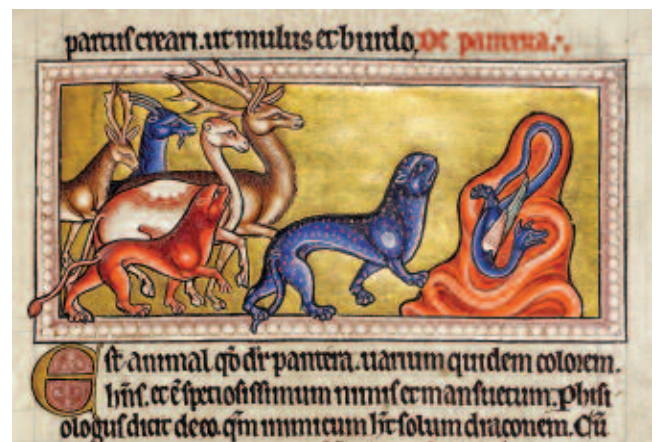 partus creari. ut mulus et burdo. De pantera.·.
Est animal qð dr̄ pantera. uarium quidem colorem.
hn̄s. et ē speciosissimum nimis et mansuetum. Phisi
ologus dicit de eo. qm̄ inimicum ht̄ solum draconem. Cū